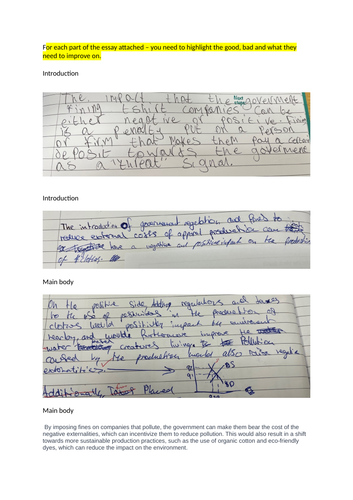 For each part of the essay attached – you need to highlight the good, bad and what they
need to improve on.
Introduction
The impact that the goverment
fining tshirt companies can be
either negative or positive. Fining
is a penalty put on a person
or firm that makes them pay a certain
deposit towards the goverment
as a "threat" signal.
Introduction
The introduction of government regulation and fines to
reduce external costs of apparel production can
have a negative and positive impact on the production
of
Main body
On the positive side, adding regulations and taxes
to the use of pesticides in the production of
clothes would positively impact the enviroment
nearby, and would furthermore improve the
water creatures living. Pollution
caused by the production would also raise negative
externalities.
Additionally,
Main body
By imposing fines on companies that pollute, the government can make them bear the cost of the
negative externalities, which can incentivize them to reduce pollution. This would also result in a shift
towards more sustainable production practices, such as the use of organic cotton and eco-friendly
dyes, which can reduce the impact on the environment.